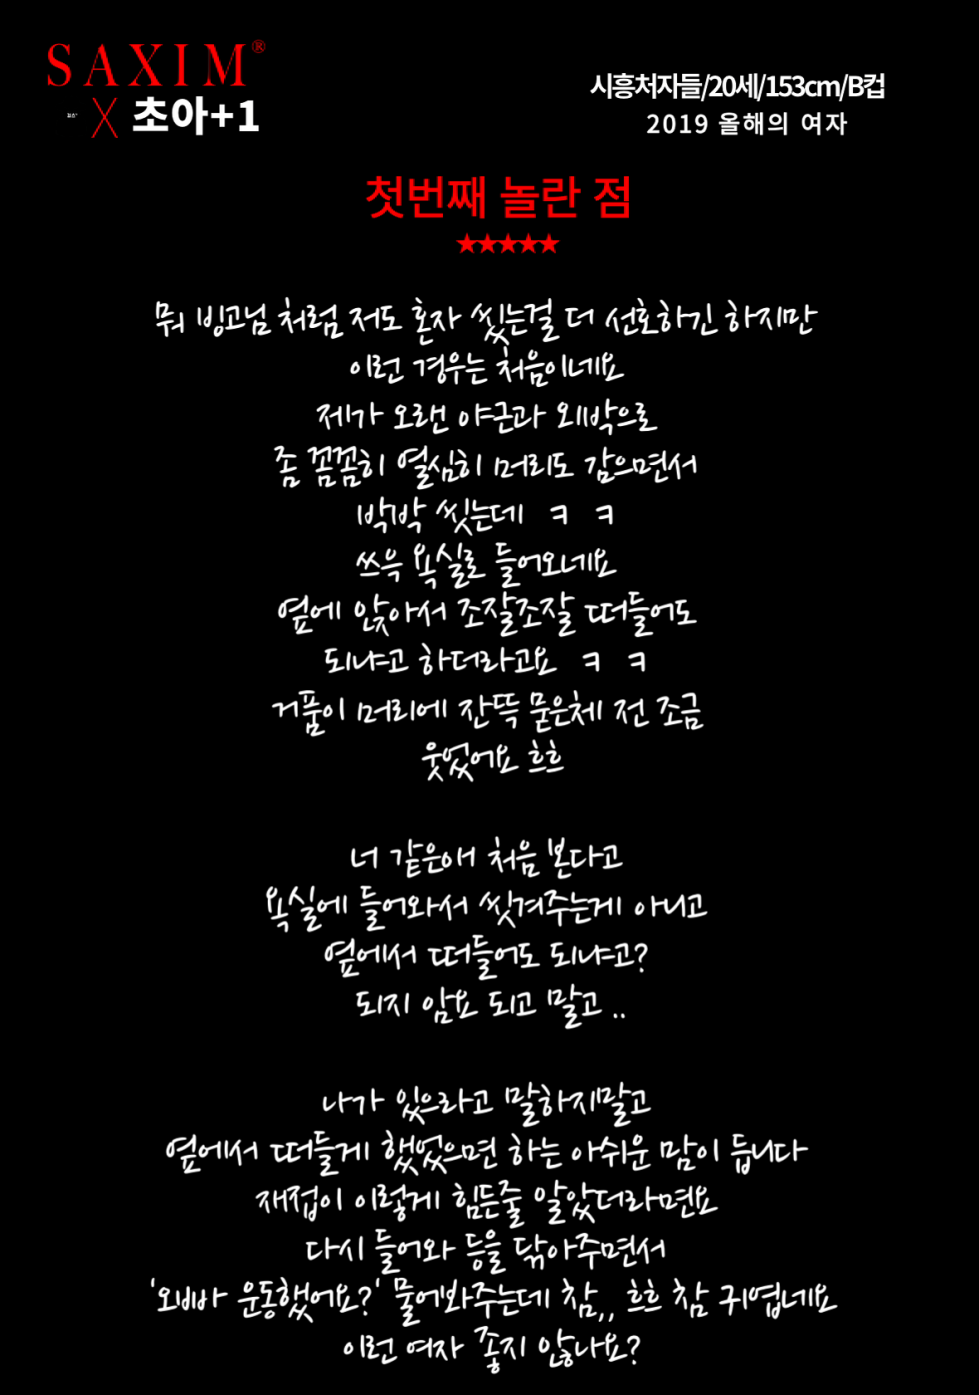 SAXIM®
X 초아+1
시흥처자들/20세/153cm/B컵
2019 올해의 여자
첫번째 놀란 점
★★★★★
뭐 빙고님 처럼 저도 혼자 씻는걸 더 선호하긴 하지만
이런 경우는 처음이네요
제가 오랜 야근과 외박으로
좀 꼼꼼히 열심히 머리도 감으면서
박박 씻는데 ㅋ ㅋ
쓰윽 욕실로 들어오네요
옆에 앉아서 조잘조잘 떠들어도
되냐고 하더라고요 ㅋ ㅋ
거품이 머리에 잔뜩 묻은체 전 조금
웃었어요 흐흐
너 같은애 처음 본다고
욕실에 들어와서 씻겨주는게 아니고
옆에서 떠들어도 되냐고?
되지 암요 되고 말고 ..
나가 있으라고 말하지말고
옆에서 떠들게 했었으면 하는 아쉬운 맘이 듭니다
재접이 이렇게 힘든줄 알았더라면요
다시 들어와 등을 닦아주면서
'오빠 운동했어요?' 물어봐주는데 참,, 흐흐 참 귀엽네요
이런 여자 좋지 않나요?